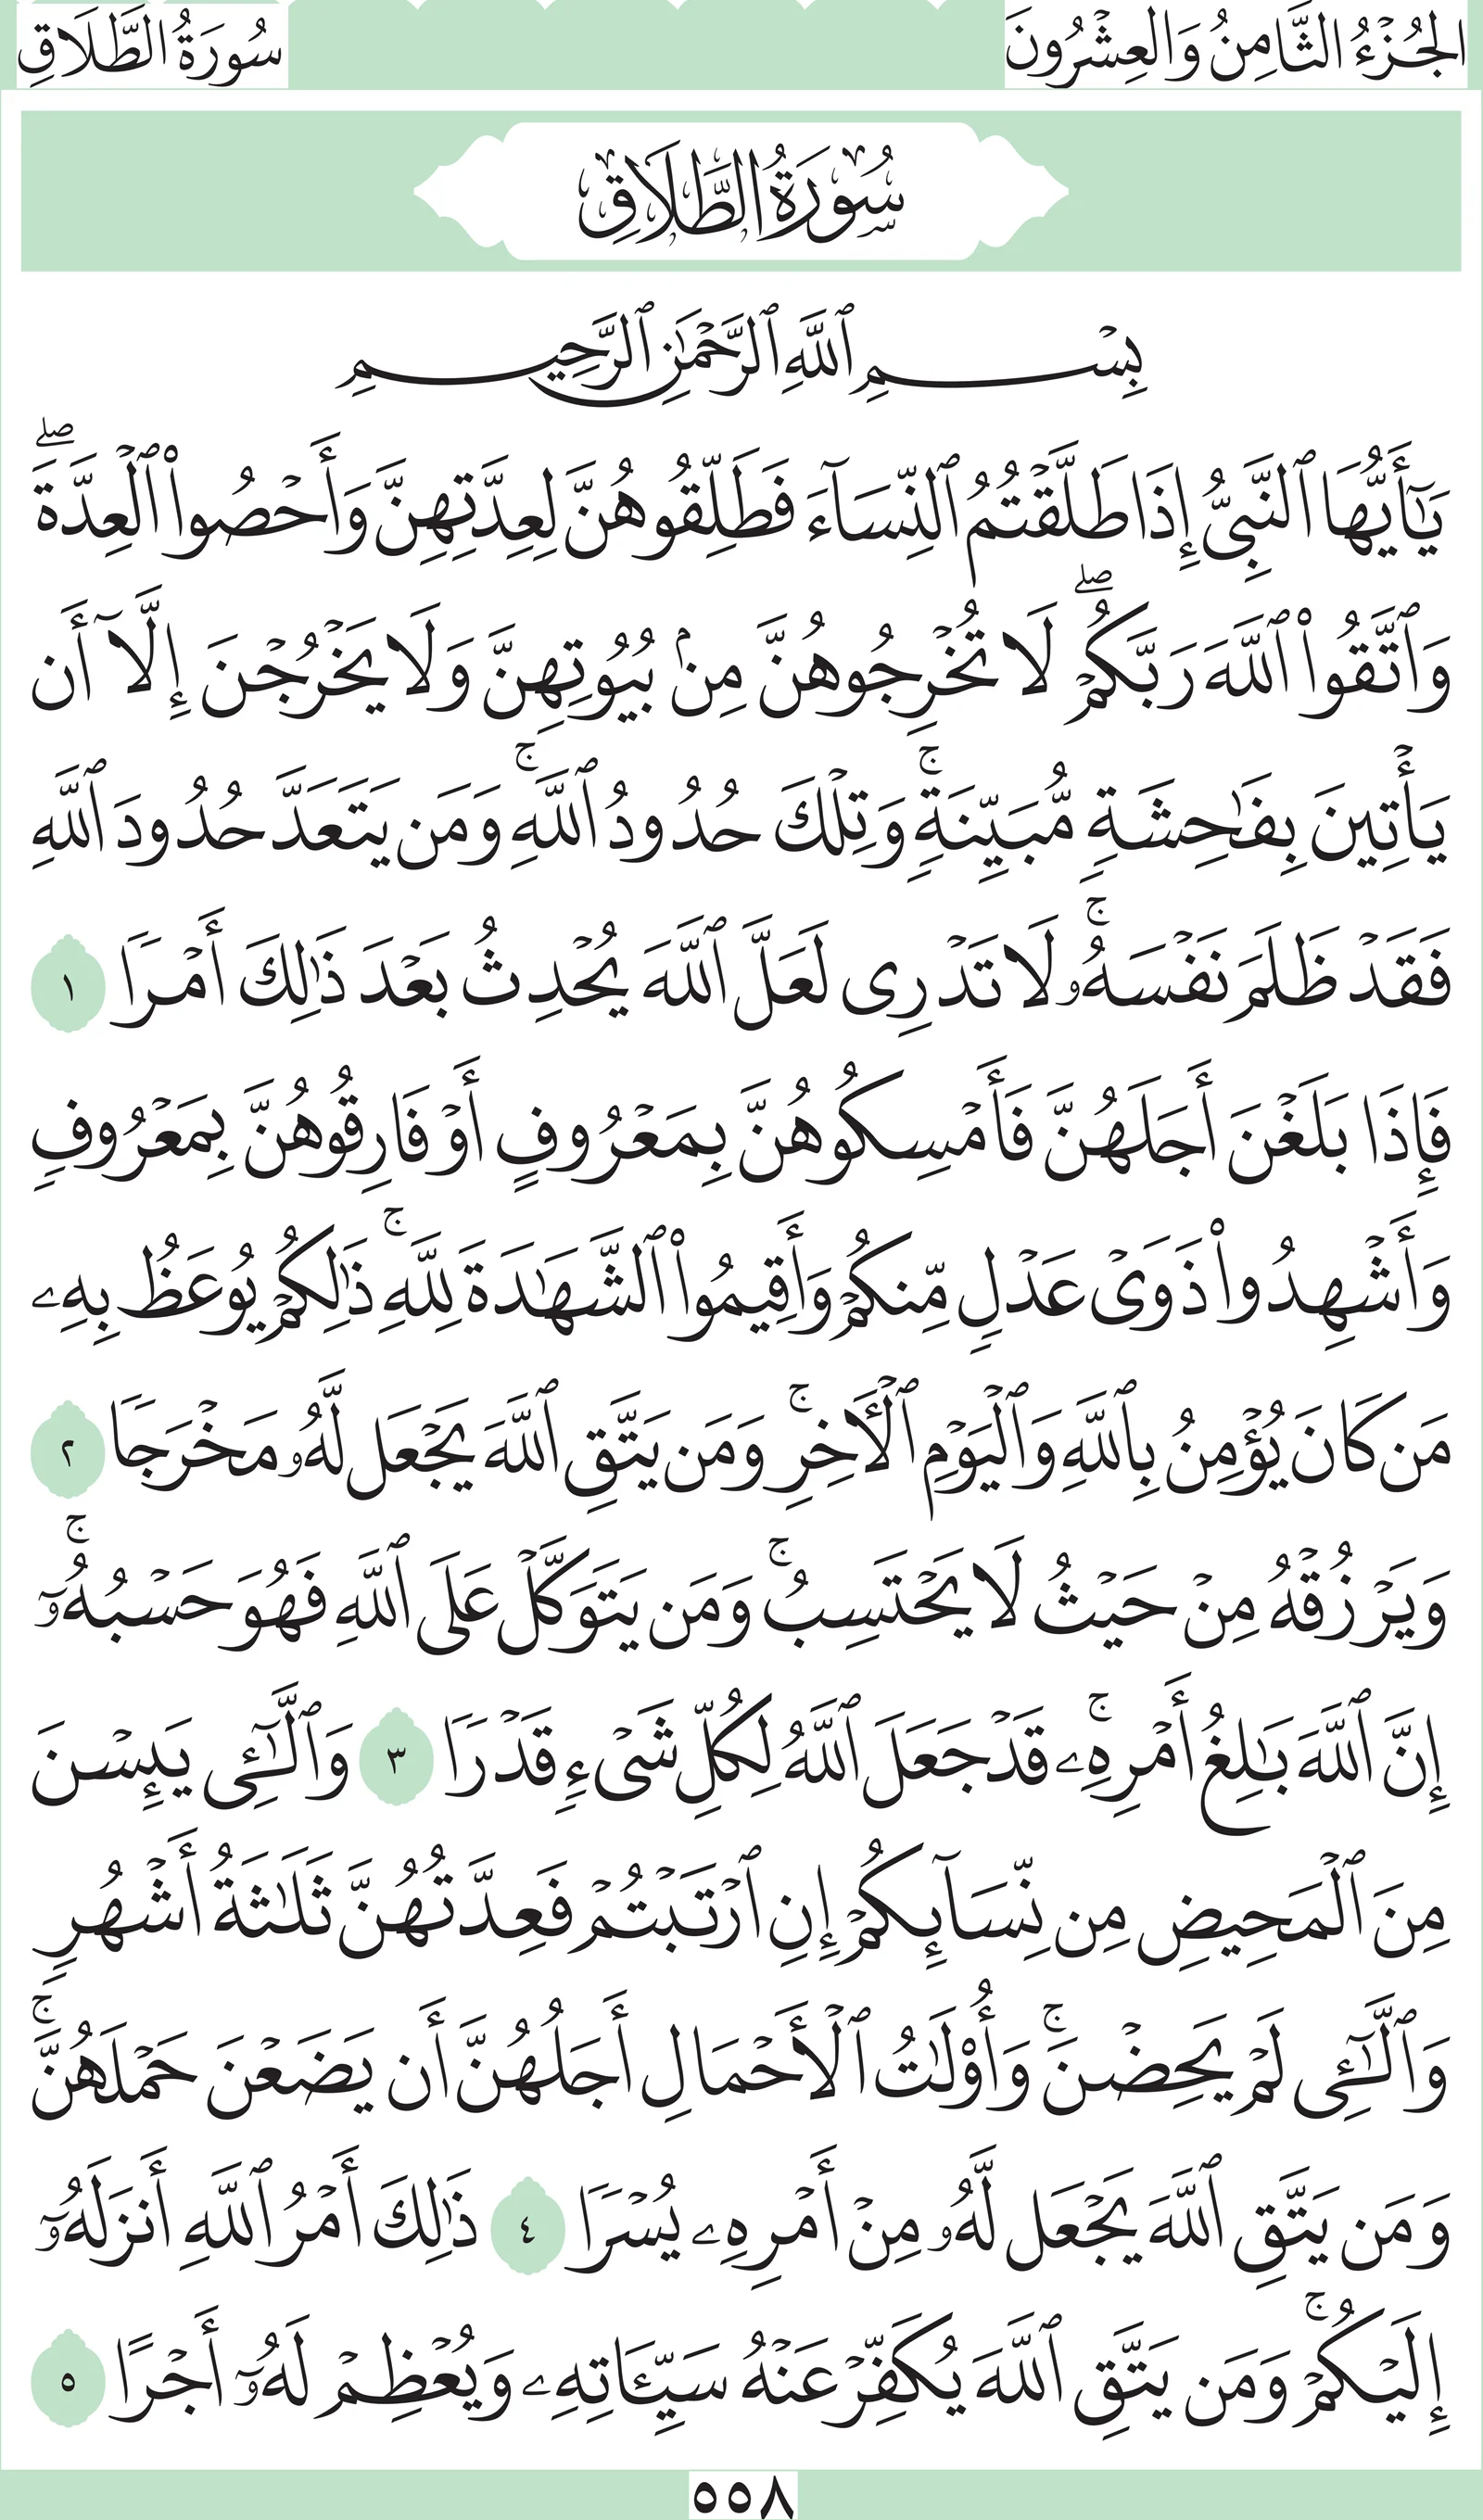 الجُزْءُ الثَّامِنُ وَالعِشْرُونَ
سُورَةُ الطَّلَاقِ
سُورَةُ الطَّلَاقِ
بِسْمِ ٱللَّهِ ٱلرَّحْمَٰنِ ٱلرَّحِيمِ
يَٰٓأَيُّهَا ٱلنَّبِىُّ إِذَا طَلَّقْتُمُ ٱلنِّسَآءَ فَطَلِّقُوهُنَّ لِعِدَّتِهِنَّ وَأَحْصُوا۟ ٱلْعِدَّةَ ۖ
وَٱتَّقُوا۟ ٱللَّهَ رَبَّكُمْ ۖ لَا تُخْرِجُوهُنَّ مِنۢ بُيُوتِهِنَّ وَلَا يَخْرُجْنَ إِلَّآ أَن
يَأْتِينَ بِفَٰحِشَةٍ مُّبَيِّنَةٍ ۚ وَتِلْكَ حُدُودُ ٱللَّهِ ۚ وَمَن يَتَعَدَّ حُدُودَ ٱللَّهِ
فَقَدْ ظَلَمَ نَفْسَهُۥ ۚ لَا تَدْرِى لَعَلَّ ٱللَّهَ يُحْدِثُ بَعْدَ ذَٰلِكَ أَمْرًا ١
فَإِذَا بَلَغْنَ أَجَلَهُنَّ فَأَمْسِكُوهُنَّ بِمَعْرُوفٍ أَوْ فَارِقُوهُنَّ بِمَعْرُوفٍ
وَأَشْهِدُوا۟ ذَوَىْ عَدْلٍ مِّنكُمْ وَأَقِيمُوا۟ ٱلشَّهَٰدَةَ لِلَّهِ ۚ ذَٰلِكُمْ يُوعَظُ بِهِۦ
مَن كَانَ يُؤْمِنُ بِٱللَّهِ وَٱلْيَوْمِ ٱلْءَاخِرِ ۚ وَمَن يَتَّقِ ٱللَّهَ يَجْعَل لَّهُۥ مَخْرَجًا ٢
وَيَرْزُقْهُ مِنْ حَيْثُ لَا يَحْتَسِبُ ۚ وَمَن يَتَوَكَّلْ عَلَى ٱللَّهِ فَهُوَ حَسْبُهُۥٓ ۚ
إِنَّ ٱللَّهَ بَٰلِغُ أَمْرِهِۦ ۚ قَدْ جَعَلَ ٱللَّهُ لِكُلِّ شَىْءٍ قَدْرًا ٣ وَٱلَّٰٓـِٔى يَئِسْنَ
مِنَ ٱلْمَحِيضِ مِن نِّسَآئِكُمْ إِنِ ٱرْتَبْتُمْ فَعِدَّتُهُنَّ ثَلَٰثَةُ أَشْهُرٍ
وَٱلَّٰٓـِٔى لَمْ يَحِضْنَ ۚ وَأُو۟لَٰتُ ٱلْأَحْمَالِ أَجَلُهُنَّ أَن يَضَعْنَ حَمْلَهُنَّ ۚ
وَمَن يَتَّقِ ٱللَّهَ يَجْعَل لَّهُۥ مِنْ أَمْرِهِۦ يُسْرًا ٤ ذَٰلِكَ أَمْرُ ٱللَّهِ أَنزَلَهُۥٓ
إِلَيْكُمْ ۚ وَمَن يَتَّقِ ٱللَّهَ يُكَفِّرْ عَنْهُ سَيِّـَٔاتِهِۦ وَيُعْظِمْ لَهُۥٓ أَجْرًا ٥
٥٥٨